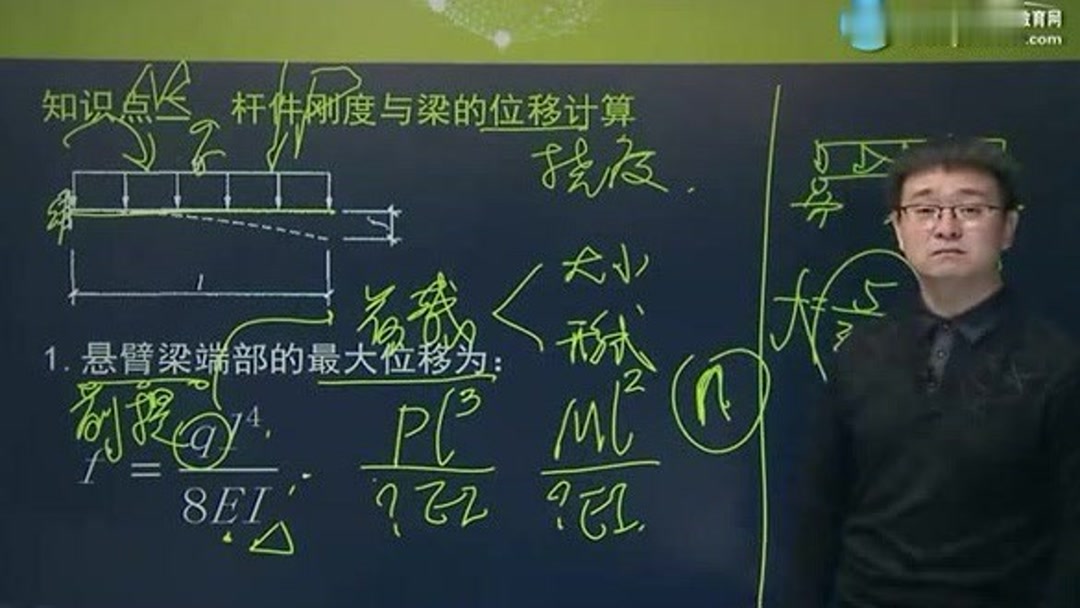 育网
.com
知识点 杆件刚度与梁的位移计算
挠度.
q
P
l
荷载
大小
形式
1.悬臂梁端部的最大位移为:
前提
f = ql⁴ / 8EI
Pl³ / ?EI
Ml² / ?EI.
n
f = 5